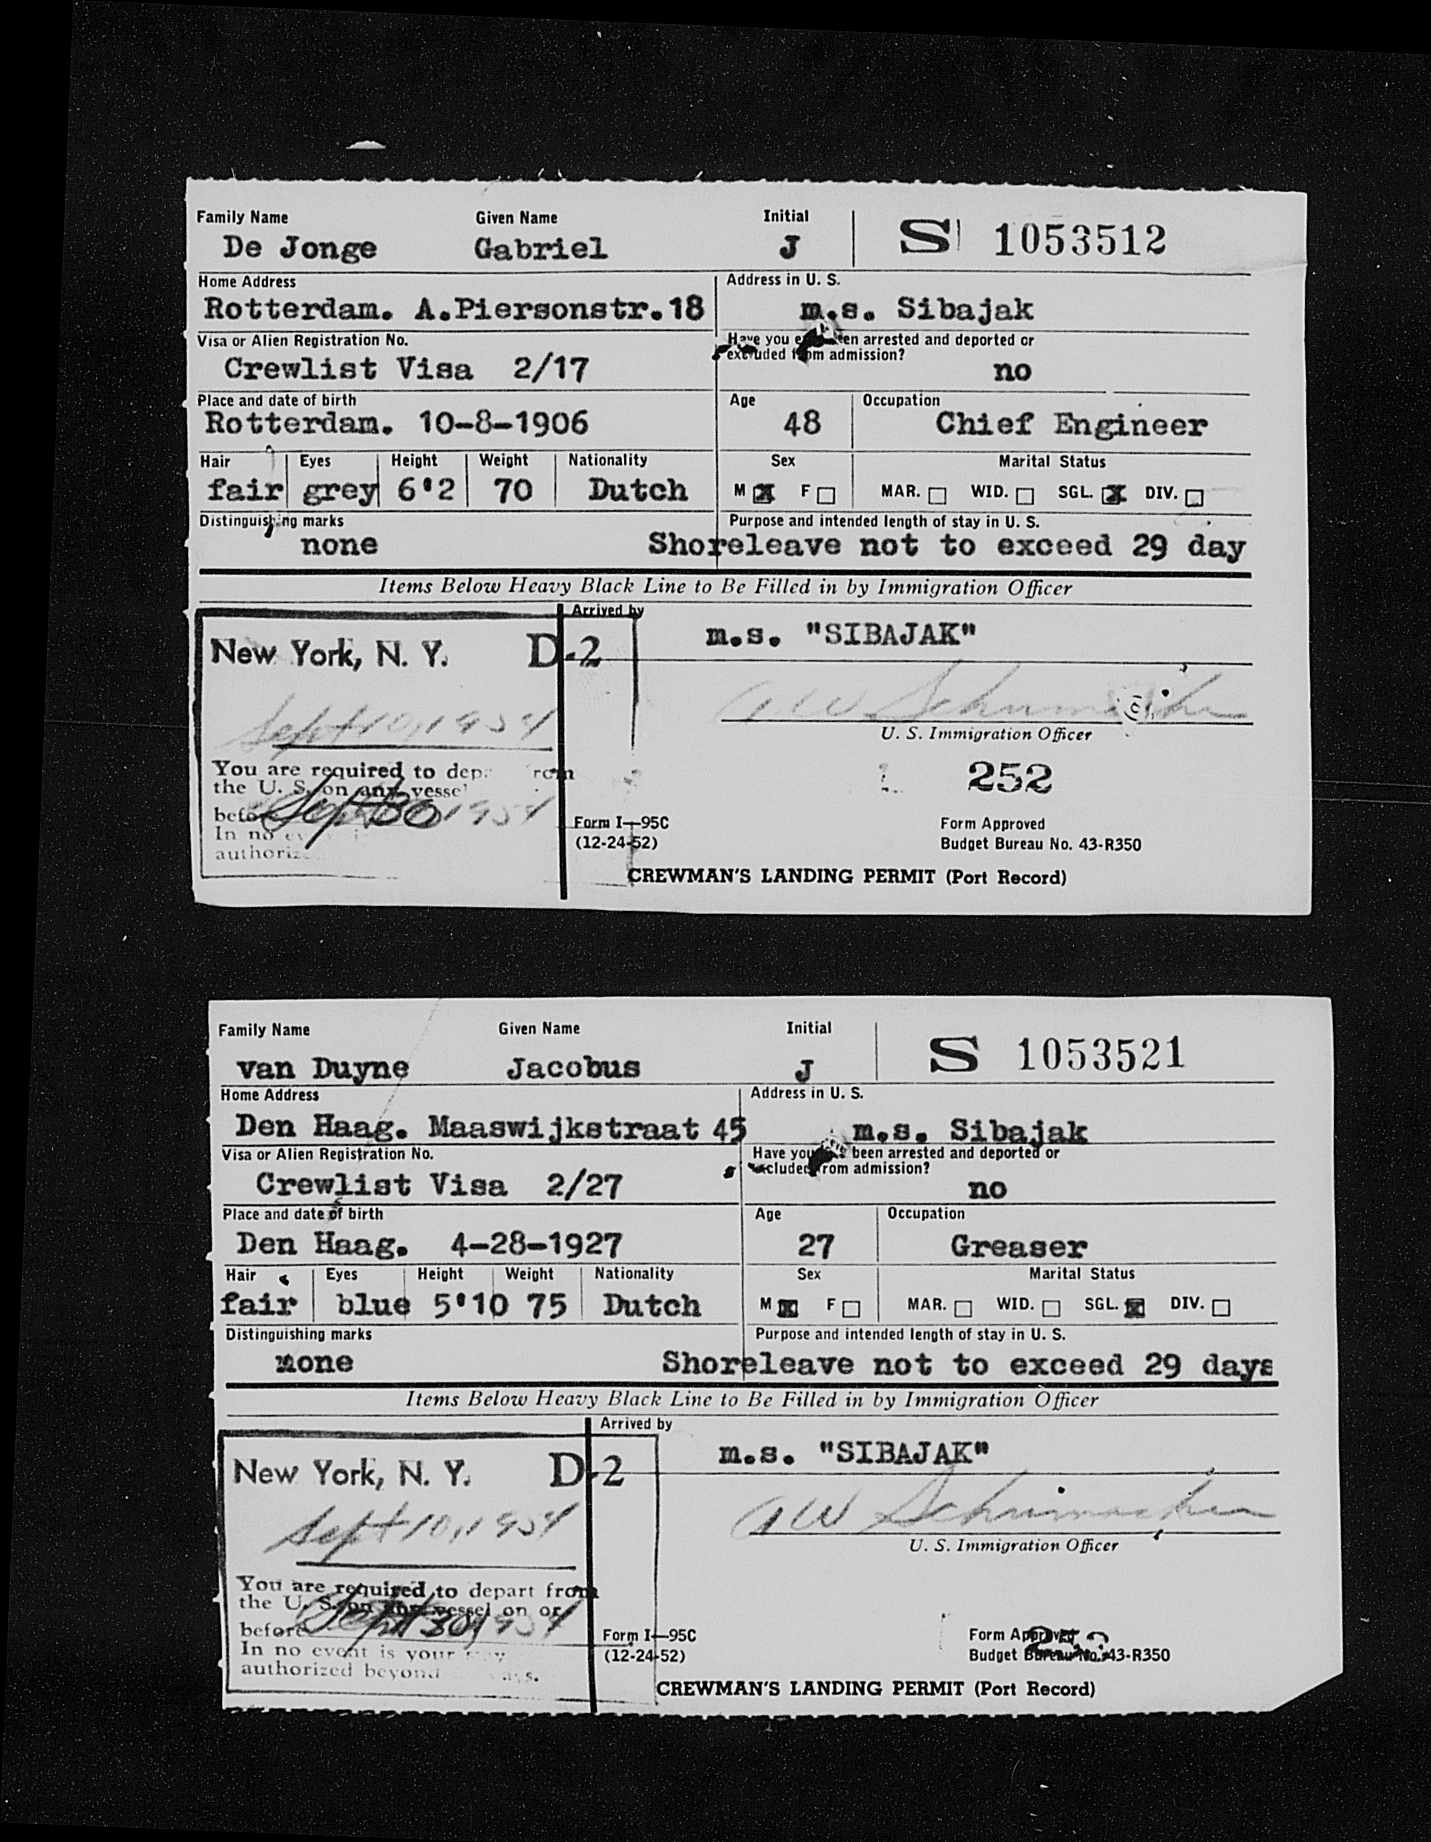 Family Name Given Name Initial
De Jonge Gabriel J S 1053512
Home Address Address in U. S.
Rotterdam. A.Piersonstr.18 m.s. Sibajak
Visa or Alien Registration No. Have you en arrested and deported or
excluded from admission?
Crewlist Visa 2/17 no
Place and date of birth Age Occupation
Rotterdam. 10-8-1906 48 Chief Engineer
Hair Eyes Height Weight Nationality Sex Marital Status
fair grey 6'2 70 Dutch M X F MAR. WID. SGL. X DIV.
Distinguishing marks Purpose and intended length of stay in U. S.
none Shoreleave not to exceed 29 day
Items Below Heavy Black Line to Be Filled in by Immigration Officer
Arrived by
New York, N. Y. D-2 m.s. "SIBAJAK"
Sept 10, 1954 A W Schumacher
U. S. Immigration Officer
You are required to dep rom 252
the U. S. on any vessel
before Sept 30 1954
In no
authoriz
Form I-95C Form Approved
(12-24-52) Budget Bureau No. 43-R350
CREWMAN'S LANDING PERMIT (Port Record)
Family Name Given Name Initial
van Duyne Jacobus J S 1053521
Home Address Address in U. S.
Den Haag. Maaswijkstraat 45 m.s. Sibajak
Visa or Alien Registration No. Have you been arrested and deported or
excluded from admission?
Crewlist Visa 2/27 no
Place and date of birth Age Occupation
Den Haag. 4-28-1927 27 Greaser
Hair Eyes Height Weight Nationality Sex Marital Status
fair blue 5'10 75 Dutch M X F MAR. WID. SGL. X DIV.
Distinguishing marks Purpose and intended length of stay in U. S.
none Shoreleave not to exceed 29 days
Items Below Heavy Black Line to Be Filled in by Immigration Officer
Arrived by
New York, N. Y. D-2 m.s. "SIBAJAK"
Sept 10, 1954 A W Schumacher
U. S. Immigration Officer
You are required to depart from
the U. S. on any vessel on or
before Sept 30, 1954
In no event is your
authorized beyond days.
Form I-95C Form Approved
(12-24-52) Budget Bureau No. 43-R350
CREWMAN'S LANDING PERMIT (Port Record)